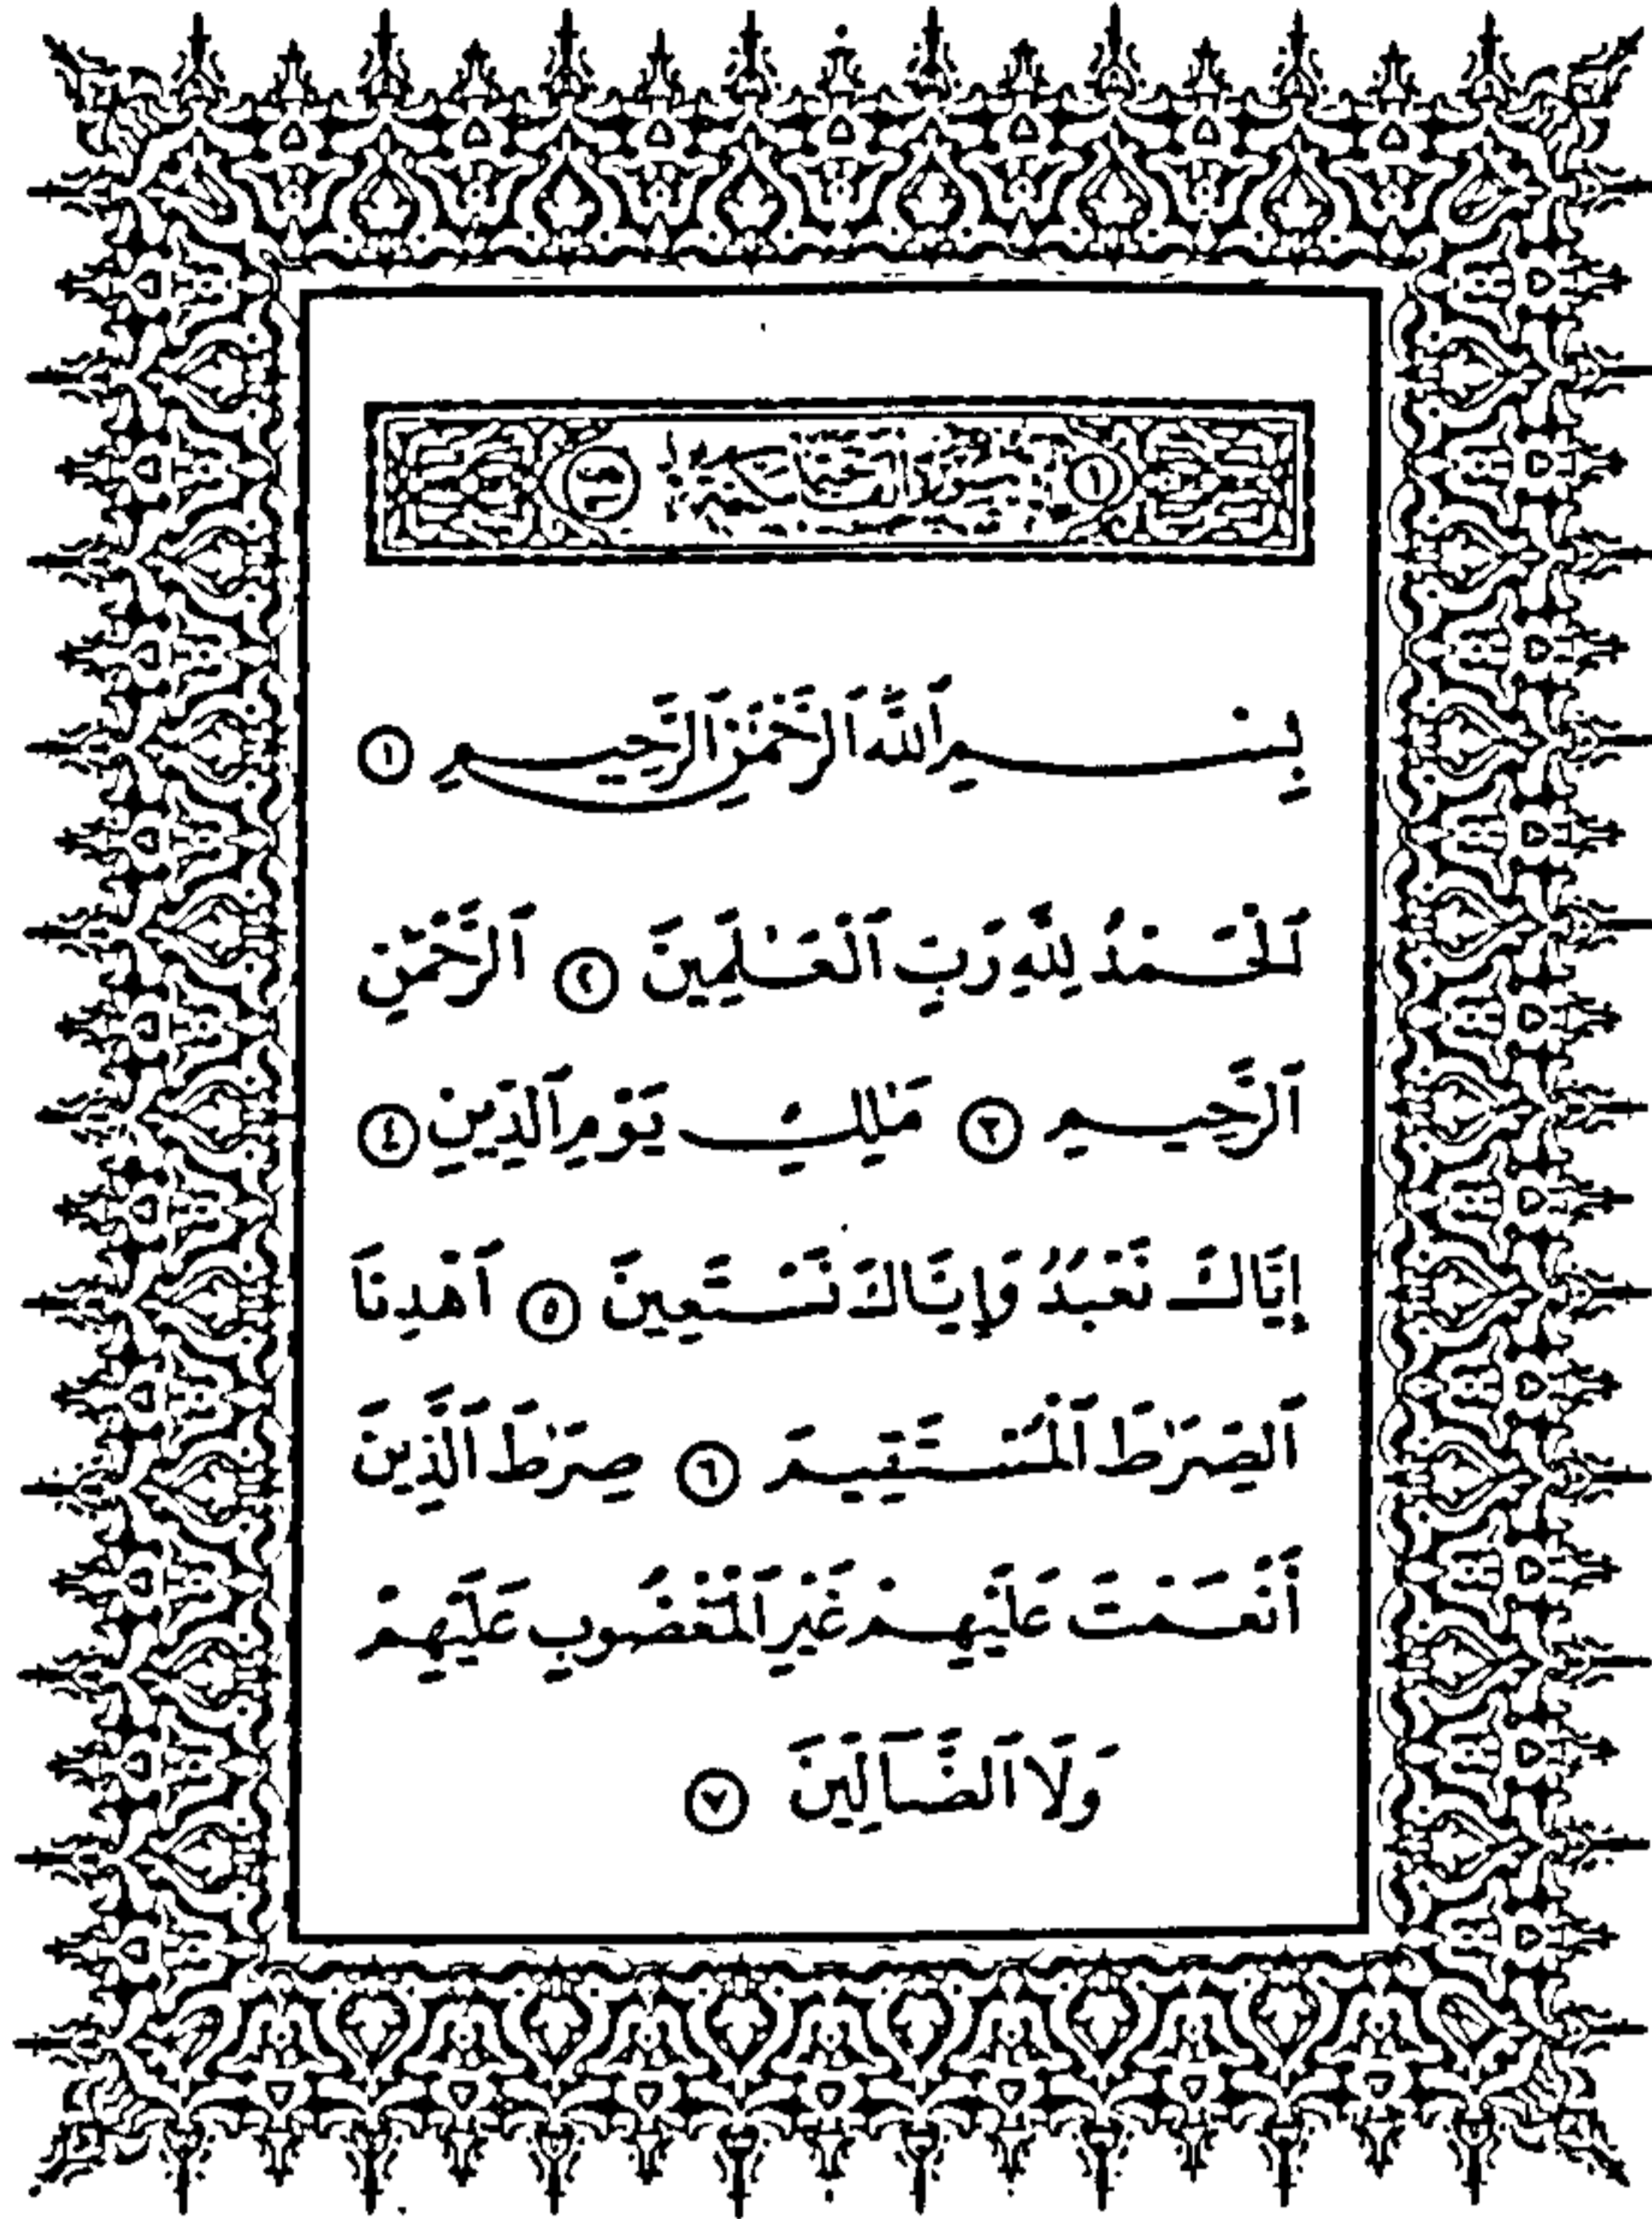 ١ سورة الفاتحة
بِسْمِ ٱللَّهِ ٱلرَّحْمَٰنِ ٱلرَّحِيمِ ١
ٱلْحَمْدُ لِلَّهِ رَبِّ ٱلْعَٰلَمِينَ ٢ ٱلرَّحْمَٰنِ
ٱلرَّحِيمِ ٣ مَٰلِكِ يَوْمِ ٱلدِّينِ ٤
إِيَّاكَ نَعْبُدُ وَإِيَّاكَ نَسْتَعِينُ ٥ ٱهْدِنَا
ٱلصِّرَٰطَ ٱلْمُسْتَقِيمَ ٦ صِرَٰطَ ٱلَّذِينَ
أَنْعَمْتَ عَلَيْهِمْ غَيْرِ ٱلْمَغْضُوبِ عَلَيْهِمْ
وَلَا ٱلضَّآلِّينَ ٧